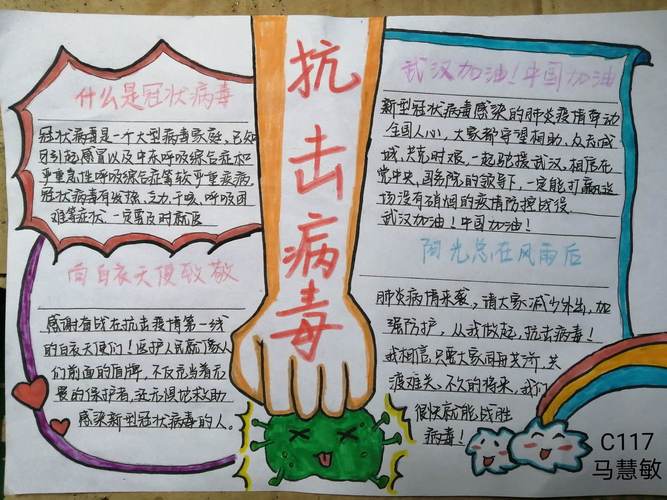 抗击病毒
什么是冠状病毒
冠状病毒是一个大型病毒家族,已知
可引起感冒以及中东呼吸综合征和
严重急性呼吸综合征等较严重疾病.
冠状病毒有发烧,乏力,干咳,呼吸困
难等症状一定要及时就医
向白衣天使致敬
感谢奋战在抗击疫情第一线
的白衣天使们!医护人民就像人
们前面的盾牌,不仅充当着无
畏的保护者,还无惧地救助
感染新型冠状病毒的人。
武汉加油!中国加油
新型冠状病毒感染的肺炎疫情牵动
全国人心,大家都守望相助,众志成
城,共克时艰,一起驰援武汉,相信在
党中央,国务院的领导下,一定能打赢这
场没有硝烟的疫情防控战役
武汉加油!中国加油!
阳光总在风雨后
肺炎病情来袭,请大家减少外出,加
强防护,从我做起,抗击病毒!
我相信,只要大家同舟共济,共
渡难关,不久的将来,我们
很快就能战胜
病毒!
C117
马慧敏